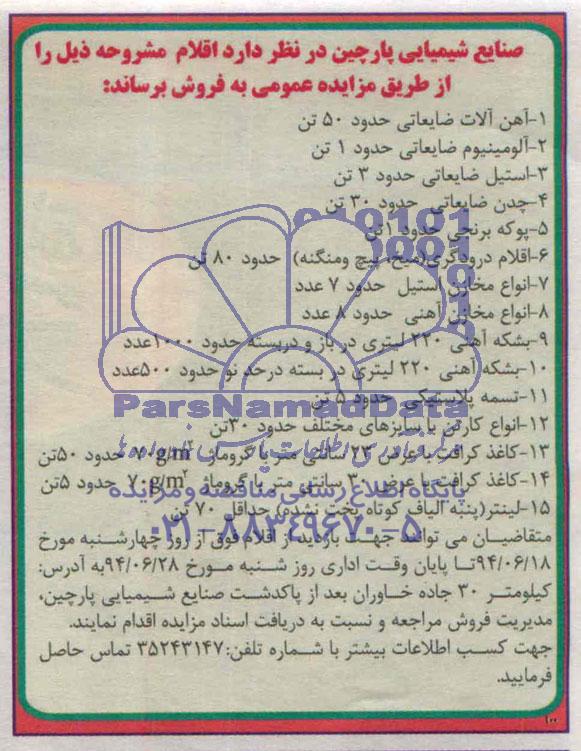 صنایع شیمیایی پارچین در نظر دارد اقلام مشروحه ذیل را
از طریق مزایده عمومی به فروش برساند:
۱-آهن آلات ضایعاتی حدود ۵۰ تن
۲-آلومینیوم ضایعاتی حدود ۱ تن
۳-استیل ضایعاتی حدود ۳ تن
۴-چدن ضایعاتی حدود ۳۰ تن
۵-پوکه برنجی حدود ۱تن
۶-اقلام درودگری(میخ، پیچ ومنگنه) حدود ۸۰ تن
۷-انواع مخازن استیل حدود ۷ عدد
۸-انواع مخازن آهنی حدود ۸ عدد
۹-بشکه آهنی ۲۲۰ لیتری در باز و دربسته حدود ۱۰۰۰عدد
۱۰-بشکه آهنی ۲۲۰ لیتری در بسته درحد نو حدود ۵۰۰عدد
۱۱-تسمه پلاستیکی حدود ۵ تن
ParsNamadData
۱۲-انواع کارتن با سایزهای مختلف حدود ۳۰تن
۱۳-کاغذ کرافت با عرض ۲۳ سانتی متر با گروماژ ۷۰g/m² حدود ۵۰تن
۱۴-کاغذ کرافت با عرض ۳۰ سانتی متر با گروماژ ۷۰g/m² حدود ۵تن
پایگاه اطلاع رسانی مناقصه و مزایده
۱۵-لینتر(پنبه الیاف کوتاه پخت نشده) حداقل ۷۰ تن
۰۲۱-۸۸۳۴۹۶۷۰-۵
متقاضیان می توانند جهت بازدید از اقلام فوق از روز چهارشنبه مورخ
۹۴/۰۶/۱۸تا پایان وقت اداری روز شنبه مورخ ۹۴/۰۶/۲۸به آدرس:
کیلومتر ۳۰ جاده خاوران بعد از پاکدشت صنایع شیمیایی پارچین،
مدیریت فروش مراجعه و نسبت به دریافت اسناد مزایده اقدام نمایند.
جهت کسب اطلاعات بیشتر با شماره تلفن:۳۵۲۴۳۱۴۷ تماس حاصل
فرمایید.
۱۰۰